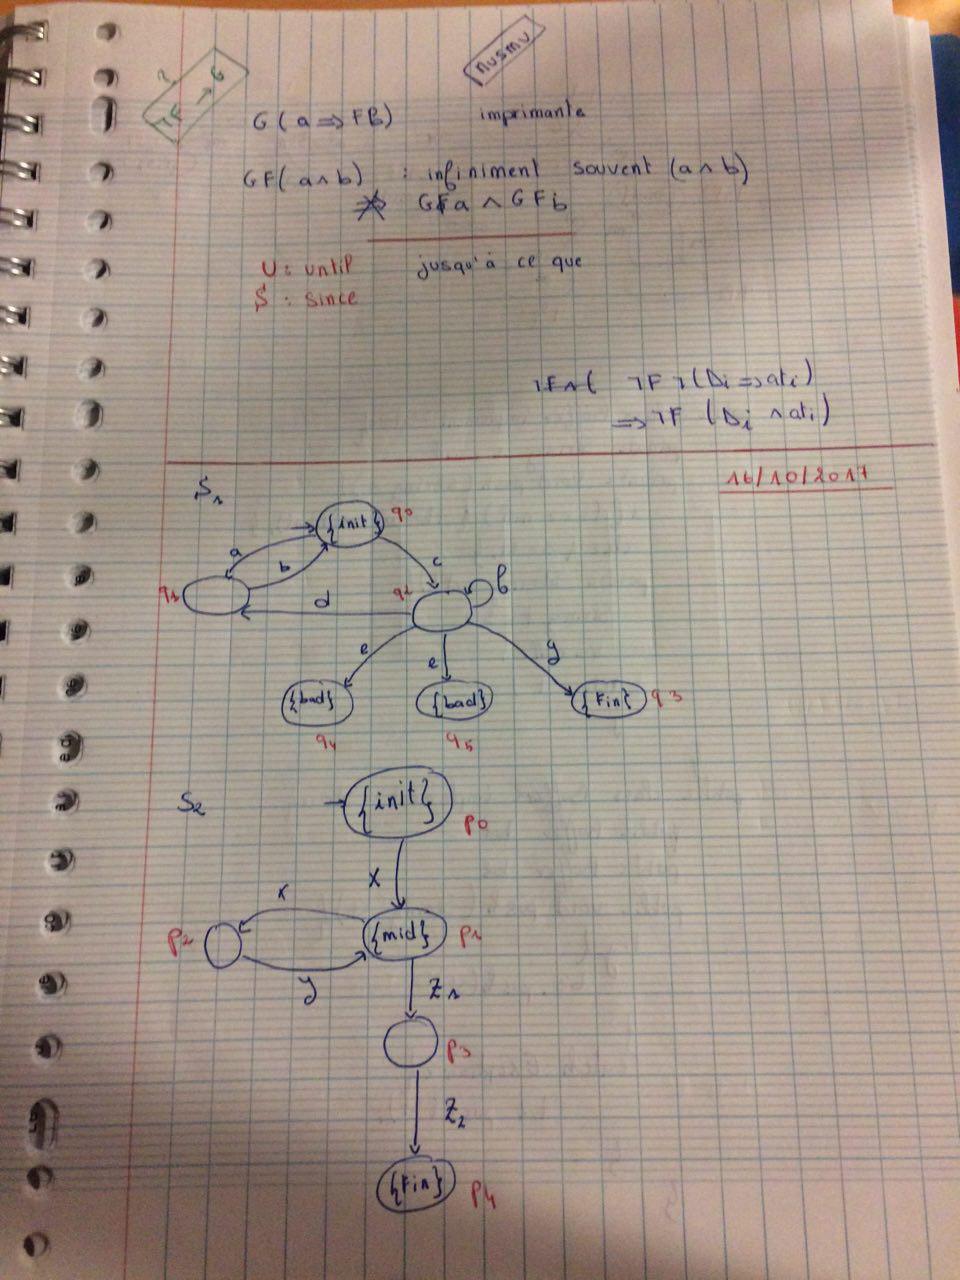 ?
¬F → G
nusmv
G ( a ⇒ Fb) imprimante
GF( a ∧ b) : infiniment souvent (a ∧ b)
⇏ GFa ∧ GFb
U : until jusqu'à ce que
S : since
¬F ¬(Di ⇒ ati)
⇒ ¬F (Di ∧ ati)
16/10/2017
S1
{init} q0
a
b
c
q1
d
q2
e
e
y
{bad}
{bad}
{Fin} q3
q4
q5
S2
{init}
p0
x
x
p2
{mid} p1
y
Z1
p3
Z2
{Fin} p4